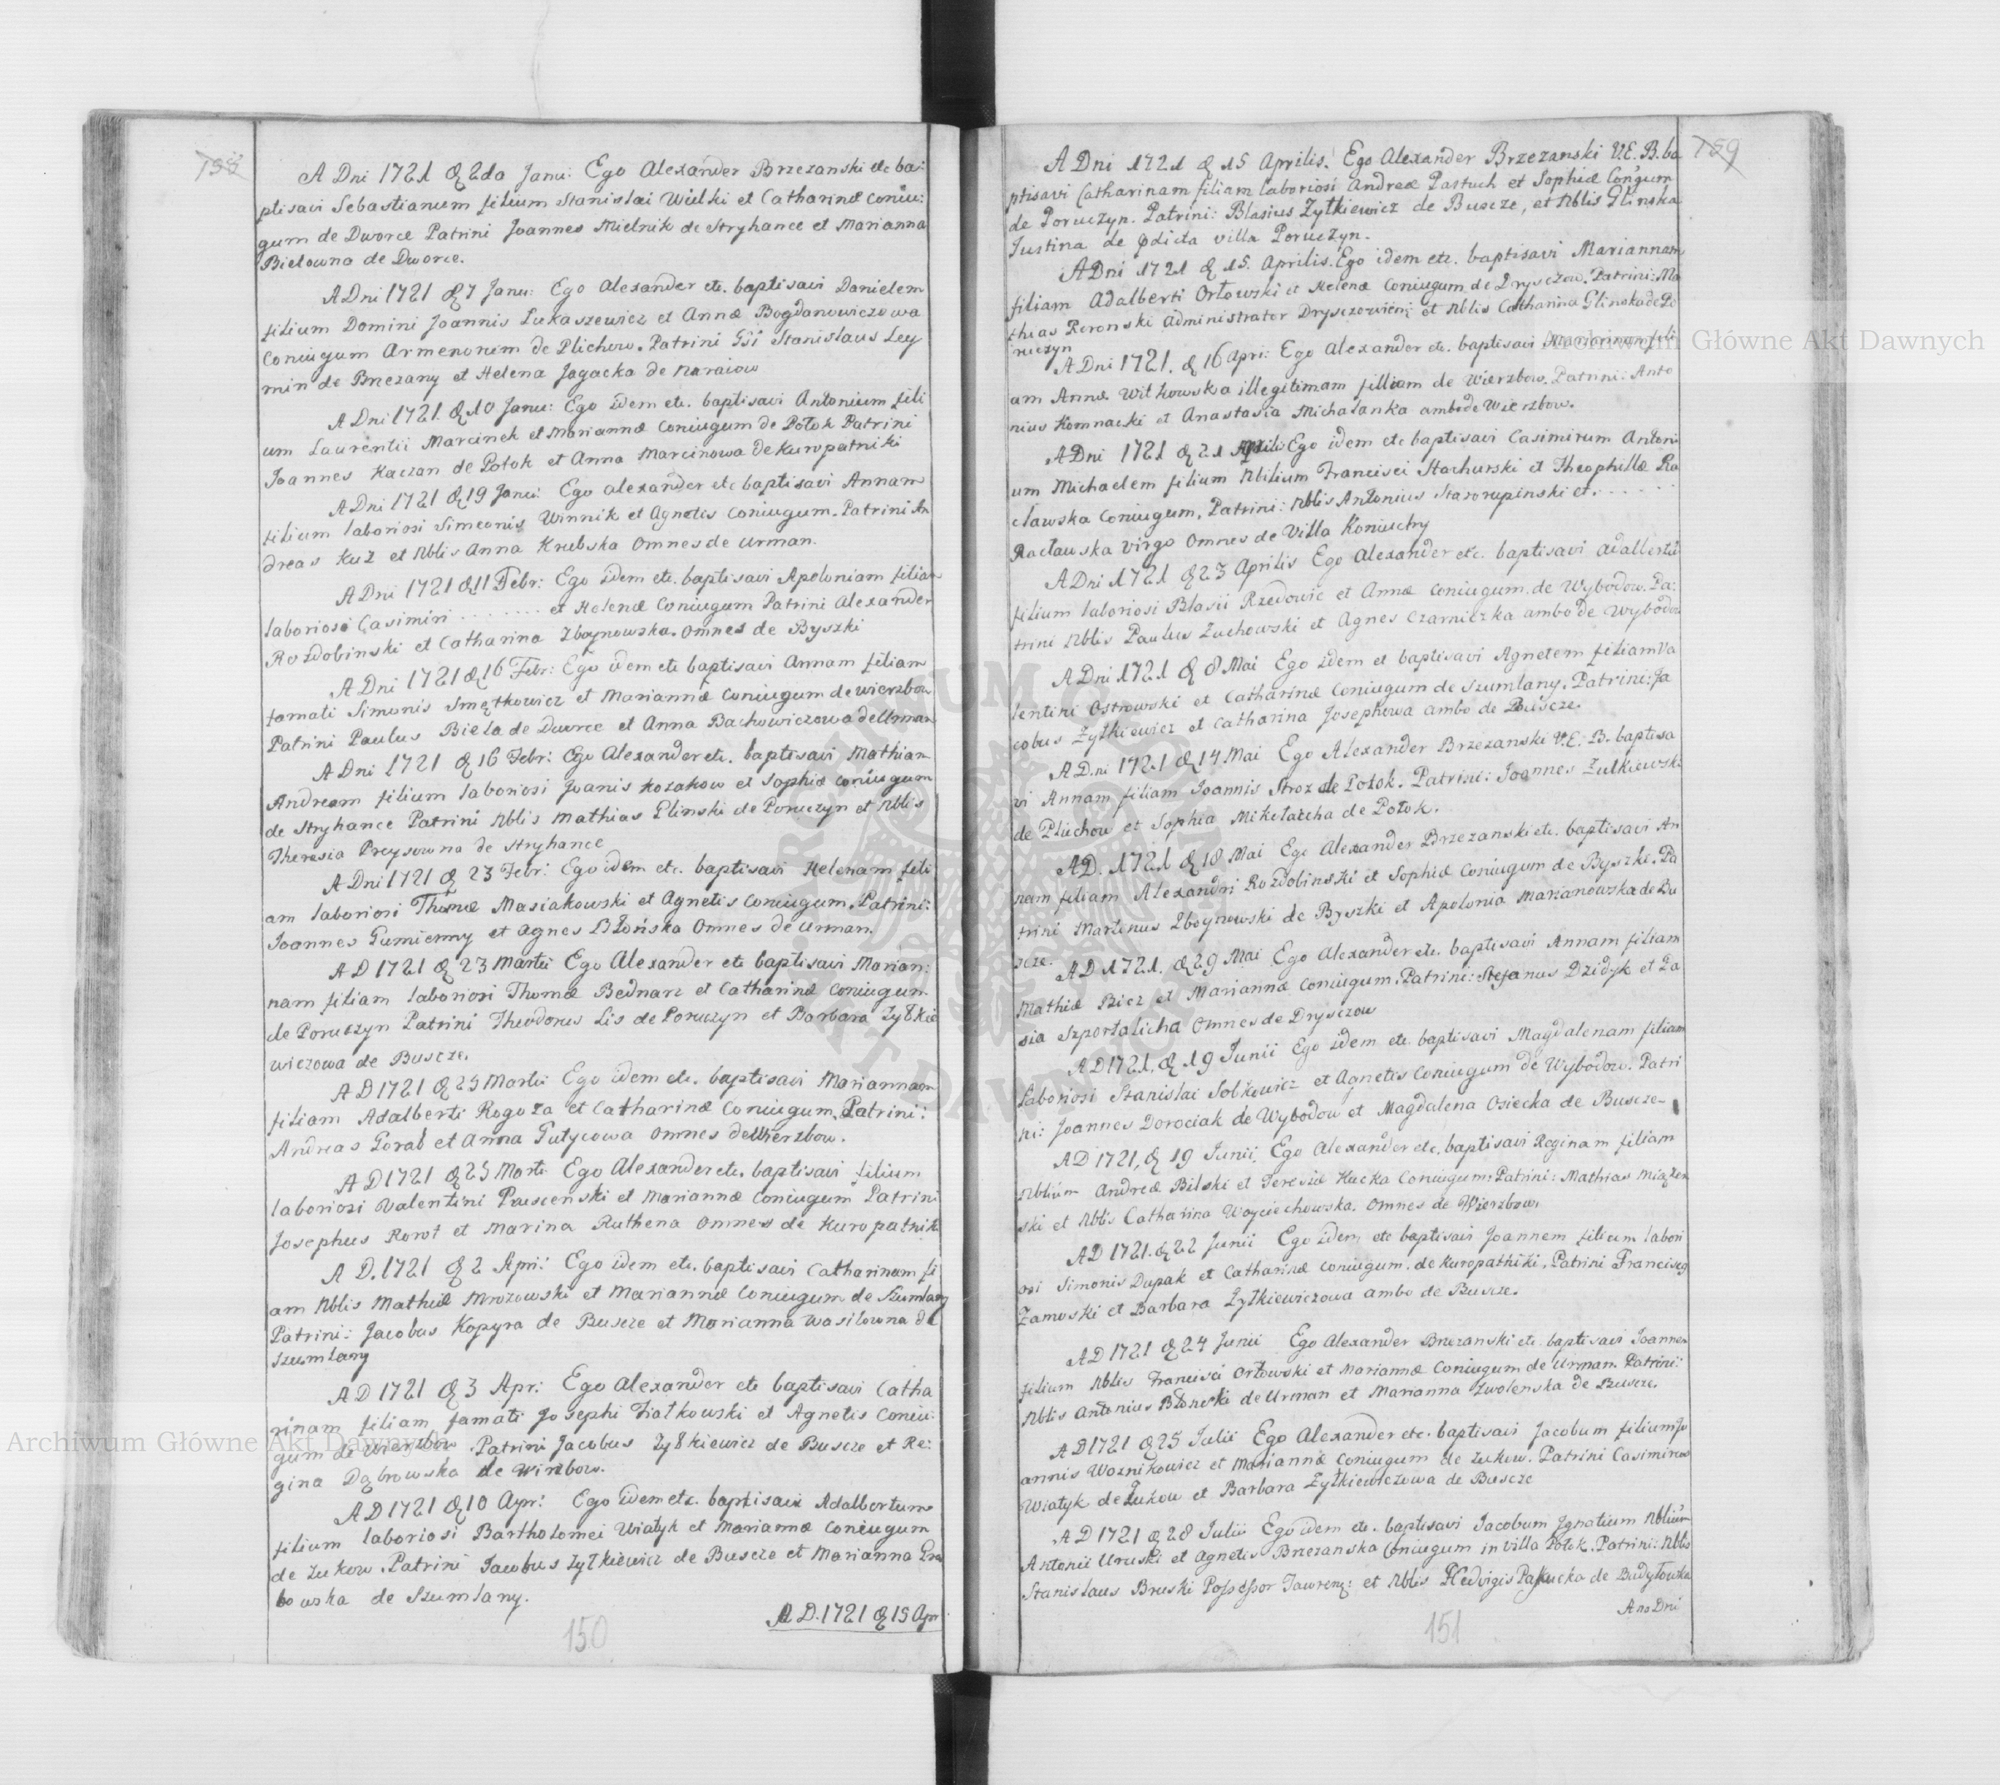 158
A Dni 1721 & 2da Janu: Ego Alexander Brzezanski etc bap:
ptisavi Sebastianum filium Stanislai Wilki et Catharinæ Coniu:
gum de Dworce Patrini Joannes Mielnik de Stryhance et Marianna
Bielowna de Dworce.
A Dni 1721 & 7 Janu: Ego Alexander etc. baptisavi Danielem
filium Domini Joannis Lukaszewicz et Annæ Bogdanowiczowa
Coniugum Armenorum de Plichow. Patrini Gsi Stanislaus Ley
min de Brzezany et Helena Jagacka de Naraiow
A Dni 1721 & 10 Janu: Ego idem etc. baptisavi Antonium fili
um Laurentii Marcinek et Mariannæ Coniugum de Potok Patrini
Joannes Kaczan de Potok et Anna Marcinowa de Kuropatniki
A Dni 1721 & 19 Janu: Ego Alexander etc baptisavi Annam
filium laboriosi Simeonis Winnik et Agnetis Coniugum. Patrini An
dreas Kuz et Nblis Anna Krubska Omnes de Urman.
A Dni 1721 & 11 Febr: Ego idem etc. baptisavi Apoloniam filiam
laboriosi Casimiri ........ et Helenæ Coniugum Patrini Alexander
Rozdobinski et Catharina Zboynowska. Omnes de Byszki
A Dni 1721 & 16 Febr: Ego idem etc baptisavi Annam filiam
famati Simonis Smętkowicz et Mariannæ Coniugum de Wierzbow
Patrini Paulus Biela de Dworce et Anna Bachowiczowa de Urman
A Dni 1721 & 16 Febr: Ego Alexander etc. baptisavi Mathiam
Andream filium laboriosi Joanis Kozakow et Sophiæ Coniugum
de Stryhance Patrini Nblis Mathias Glinski de Poruczyn et Nblis
Theresia Preysowna de Stryhance
A Dni 1721 & 23 Febr: Ego idem etc. baptisavi Helenam fili
am laboriosi Thomæ Masiakowski et Agnetis Coniugum. Patrini:
Joannes Gumienny et Agnes Błońska Omnes de Urman.
A D 1721 & 23 Martii Ego Alexander etc baptisavi Marian:
nam filiam laboriosi Thomæ Bednarz et Catharinæ Coniugum
de Poruczyn Patrini Theodorus Lis de Poruczyn et Barbara Zytkie
wiczowa de Buscze.
A D 1721 & 25 Martii Ego idem etc. baptisavi Mariannam
filiam Adalberti Rogoza et Catharinæ Coniugum. Patrini:
Andreas Goral et Anna Putycowa Omnes de Wierzbow.
A D 1721 & 25 Marti Ego Alexander etc. baptisavi filium
laboriosi Valentini Pruscenski et Mariannæ Coniugum Patrini
Josephus Rorot et Marina Ruthena Omnes de Kuropatnik
A D. 1721 & 2 Apri: Ego idem etc. baptisavi Catharinam fi
am Nblis Mathiæ Mrozowski et Mariannæ Coniugum de Szumlany
Patrini: Jacobus Kopyra de Buscze et Marianna Wasilowna de
Szumlany
A D 1721 & 3 Apr: Ego Alexander etc baptisavi Catha
rinam filiam famati Josephi Fiatkowski et Agnetis Coniu:
gum de Wierzbow Patrini Jacobus Zytkiewicz de Buscze et Re:
gina Dąbrowska de Wirzbow.
A D 1721 & 10 Apr: Ego idem etc. baptisavi Adalbertum
filium laboriosi Bartholomei Wiatyk et Mariannæ Coniugum
de Zukow. Patrini Jacobus Zytkiewicz de Buscze et Marianna Gra
bowska de Szumlany.
A D. 1721 & 15 Apr
150
159
A Dni 1721 & 15 Aprilis. Ego Alexander Brzezanski V.E.B. ba
ptisavi Catharinam filiam laboriosi Andreæ Pastuch et Sophiæ Con'gum
de Poruczyn. Patrini: Blasius Zytkiewicz de Buscze, et Nblis Glinska
Justina de pdicta villa Poruczyn.
A Dni 1721 & 15. Aprilis. Ego idem etc. baptisavi Mariannam
filiam Adalberti Orłowski et Helenæ Coniugum de Drysczow. Patrini: Ma
thias Reronski Administrator Drysczowien: et Nblis Catharina Glinska de Po
ruczyn
A Dni 1721. & 16 Apri: Ego Alexander etc. baptisavi Mariannam fili
am Annæ Witkowska illegitimam filliam de Wierzbow. Patrini: Anto
nius Komnacki et Anastasia Michalanka ambo de Wierzbow.
A Dni 1721 & 21 Aprilis Ego idem etc baptisavi Casimirum Antoni
um Michaelem filium Nbilium Francisci Stachurski et Theophillæ Ra
cławska Coniugum. Patrini: Nblis Antonius Starorupinski et. . . . . . .
Racławska Virgo Omnes de Villa Koniuchy
A Dni 1721 & 23 Aprilis Ego Alexander etc. baptisavi Adalbertū
filium laboriosi Blasii Rzedowic et Annæ Coniugum de Wybodow. Pa:
trini Nblis Paulus Zuchowski et Agnes Czarniczka ambo de Wybodow
A Dni 1721 & 8 Mai Ego idem et baptisavi Agnetem filiam Va
lentini Ostrowski et Catharinæ Coniugum de Szumlany. Patrini: Ja
cobus Zytkiewicz et Catharina Josephowa ambo de Buscze.
A D.ni 1721 & 14 Mai Ego Alexander Brzezanski V.E.B. baptisa
vi Annam filiam Joannis Stroz de Potok. Patrini: Joannes Zulkiewski
de Pluchow et Sophia Mikołaicha de Potok.
AD. 1721 & 18 Mai Ego Alexander Brzezanski etc. baptisavi An
nam filiam Alexandri Rozdobinski et Sophiæ Coniugum de Byszki. Pa
trini Martinus Zboynowski de Byszki et Apolonia Marianowska de Bu
scze.
AD 1721. & 29 Mai Ego Alexander etc. baptisavi Annam filiam
Mathiæ Bicz et Mariannæ Coniugum. Patrini: Stefanus Dzidyk et Pa
sia Szportalicha Omnes de Drysczow
A D 1721. & 19 Junii Ego idem etc. baptisavi Magdalenam filiam
Laboriosi Stanislai Sobkowicz et Agnetis Coniugum de Wybodow. Patri
ni: Joannes Dorociak de Wybodow et Magdalena Osiecka de Buscze
AD 1721. & 19 Junii. Ego Alexander etc. baptisavi Reginam filiam
Nblium Andreæ Bilski et Teresiæ Kucka Coniugum: Patrini: Mathias Miączen
ski et Nblis Catharina Woyciechowska. Omnes de Wierzbow.
AD 1721. & 22 Junii Ego idem etc baptisavi Joannem filium labori
osi Simonis Dupak et Catharinæ coniugum. de Kuropatniki. Patrini Franciscus
Zamoski et Barbara Zytkiewiczowa ambo de Buscze.
AD 1721 & 24 Junii Ego Alexander Brzezanski etc. baptisavi Joannem
filium Nblis Francisci Orłowski et Mariannæ Coniugum de Urman. Patrini:
Nblis Antonius Błonski de Urman et Marianna Zwolenska de Buscze.
AD 1721 & 25 Julii Ego Alexander etc. baptisavi Jacobum filium Jo
annis Woznikowicz et Mariannæ Coniugum de Zukow. Patrini Casimirus
Wiatyk de Zukow et Barbara Zytkiewiczowa de Buscze
A D 1721 & 28 Julii Ego idem etc. baptisavi Jacobum Ignatium Nblium
Antonii Uruski et Agnetis Brzezanska Coniugum in villa Potok. Patrini: Nblis
Stanislaus Bruski Possessor Jawrenz: et Nblis Hedvigis Pakucka de Budyłowka
A no Dni
151
Archiwum Główne Akt Dawnych
Archiwum Główne Akt Dawnych